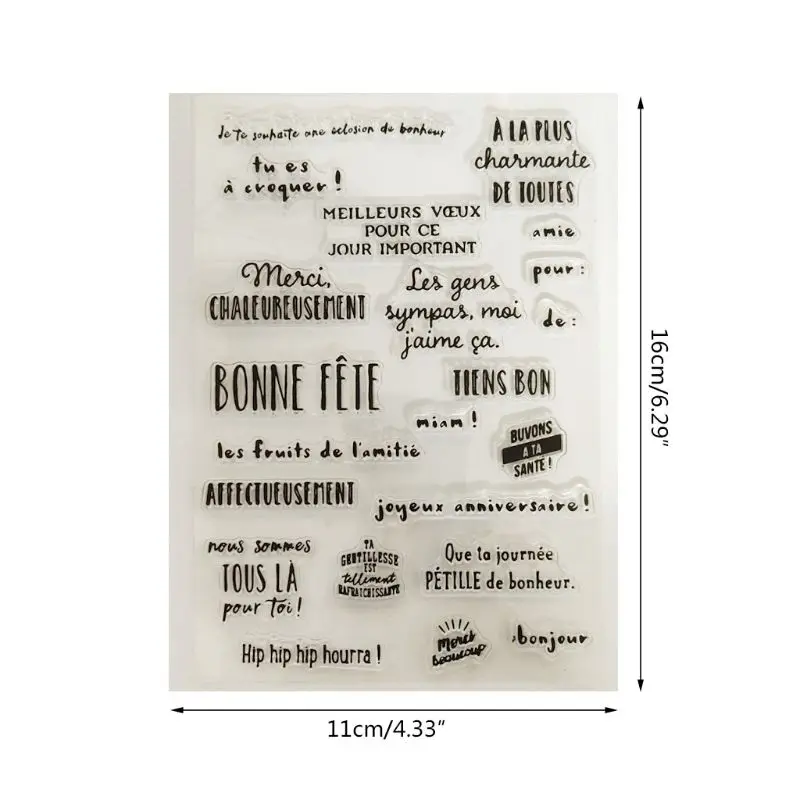 Je te souhaite une eclosion de bonheur
tu es
à croquer !
À LA PLUS
charmante
DE TOUTES
MEILLEURS VŒUX
POUR CE
JOUR IMPORTANT
amie
pour :
de :
Merci,
CHALEUREUSEMENT
Les gens
sympas, moi
j'aime ça.
BONNE FÊTE
TIENS BON
miam !
BUVONS
A TA
SANTÉ !
les fruits de l'amitié
AFFECTUEUSEMENT
joyeux anniversaire !
nous sommes
TOUS LÀ
pour toi !
TA
GENTILLESSE
EST
tellement
RAFRAICHISSANTE
Que ta journée
PÉTILLE de bonheur.
Hip hip hip hourra !
Merci
beaucoup
bonjour
16cm/6.29"
11cm/4.33"